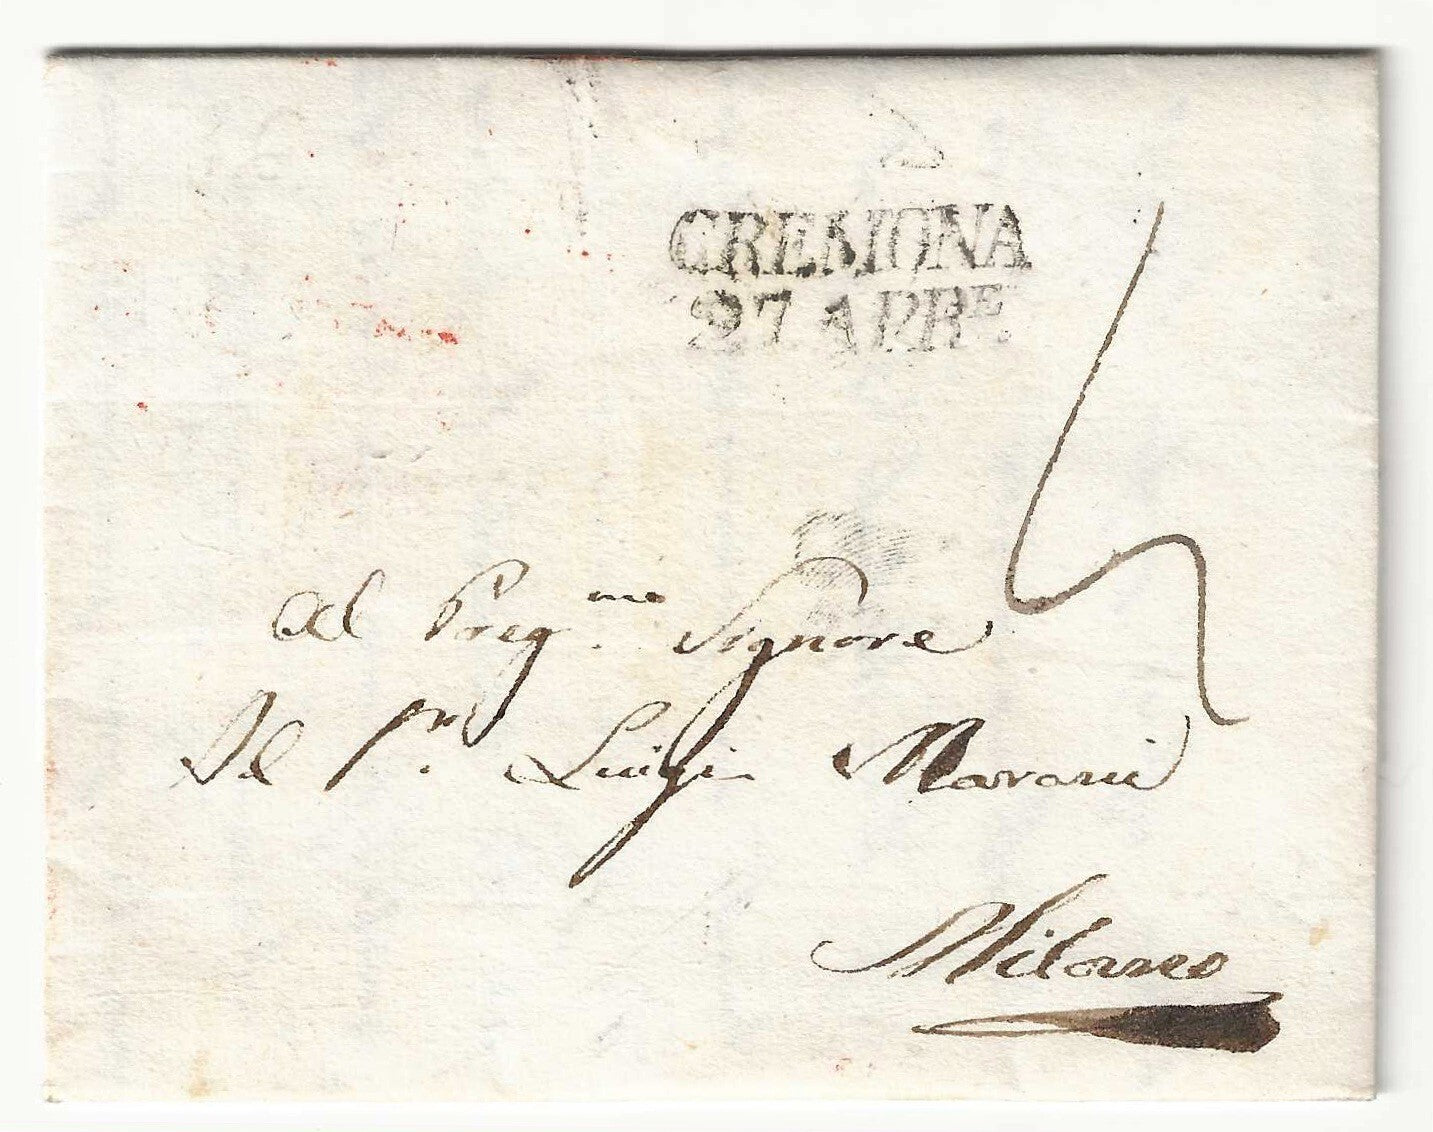 CREMONA
27 APRE.
Al Preg.mo Signore
Luigi Marani
Milano